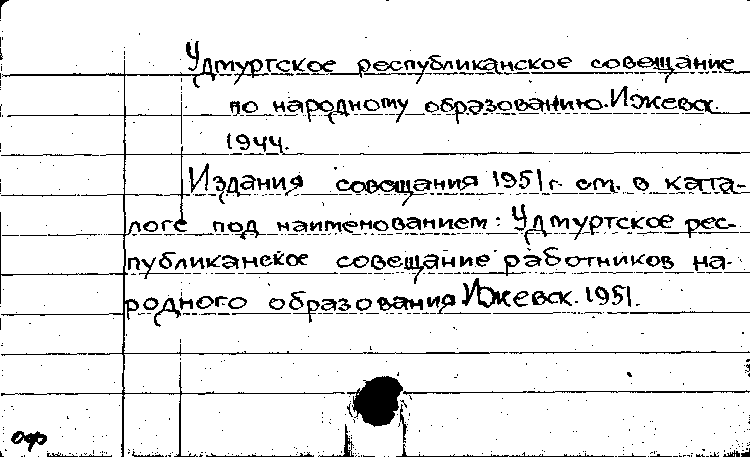 Удмуртское республиканское совещание
по народному образованию. Ижевск.
1944.
Издания совещания 1951 г. см. в ката-
логе под наименованием: Удмуртское рес-
публиканское совещание работников на-
родного образования Ижевск. 1951.
оф